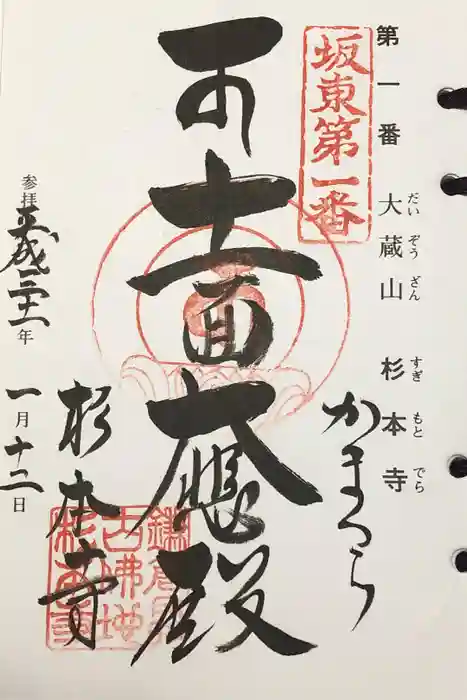 第一番 大蔵山 杉本寺
だいぞうざん すぎもとでら
坂東第一番
かまくら
十一面
大悲殿
杉本寺
参拝 平成三十一年
一月十二日